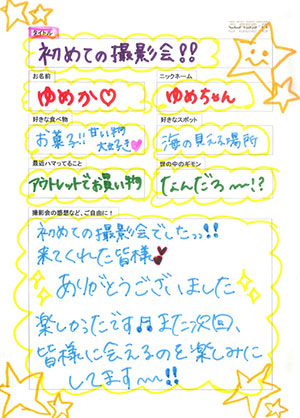 タイトル
初めての撮影会!!
お名前
ニックネーム
ゆめか♡
ゆめちゃん
好きな食べ物
好きなスポット
お菓子!! 甘い物
大好き
海の見える場所
最近ハマってること
世の中のギモン
アウトレットでお買い物
なんだろ〜!?
撮影会の感想など、ご自由に!
初めての撮影会でしたっっ!!
来てくれた皆様
ありがとうございました
楽しかったです♬また次回、
皆様に会えるのを楽しみに
してます〜!!